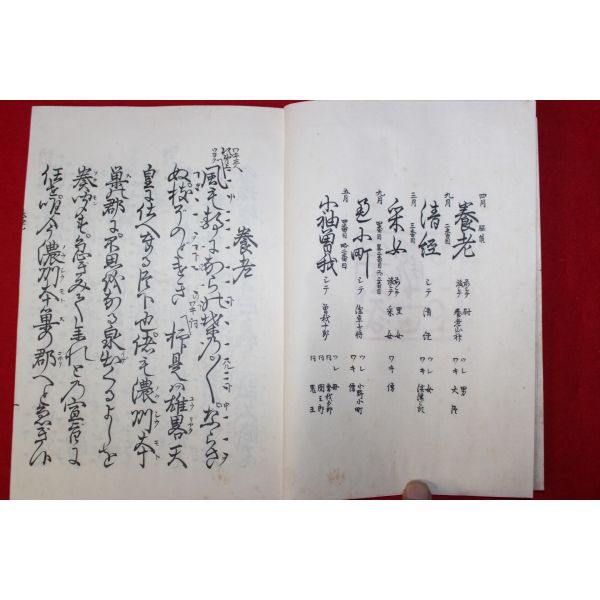 四月 脇能
養老
前シテ 尉 ツレ 男
後シテ 養老山神 ワキ 大臣
九月 二番目
清経
シテ 清経 ツレ 女
ワキ 淡津三郎
三月 三番目
采女
前シテ 里女 ワキ 僧
後シテ 采女
九月
通小町
シテ 深草少将 ツレ 小野小町
ワキ 僧
五月
小袖曽我
シテ 曽我十郎 ツレ 母
同 曽我五郎
同 団三郎
同 鬼王
養老
風も静かにならの葉の〳〵ならさ
ぬ枝ぞのどけき 抑是は雄略天
皇に仕へ奉る臣下也 偖も濃州本
巣の郡に不思議なる泉出くるよしを
奏聞す 急ぎ見て参れとの宣旨に
任せ 只今濃州本巣の郡へと急ぎ候